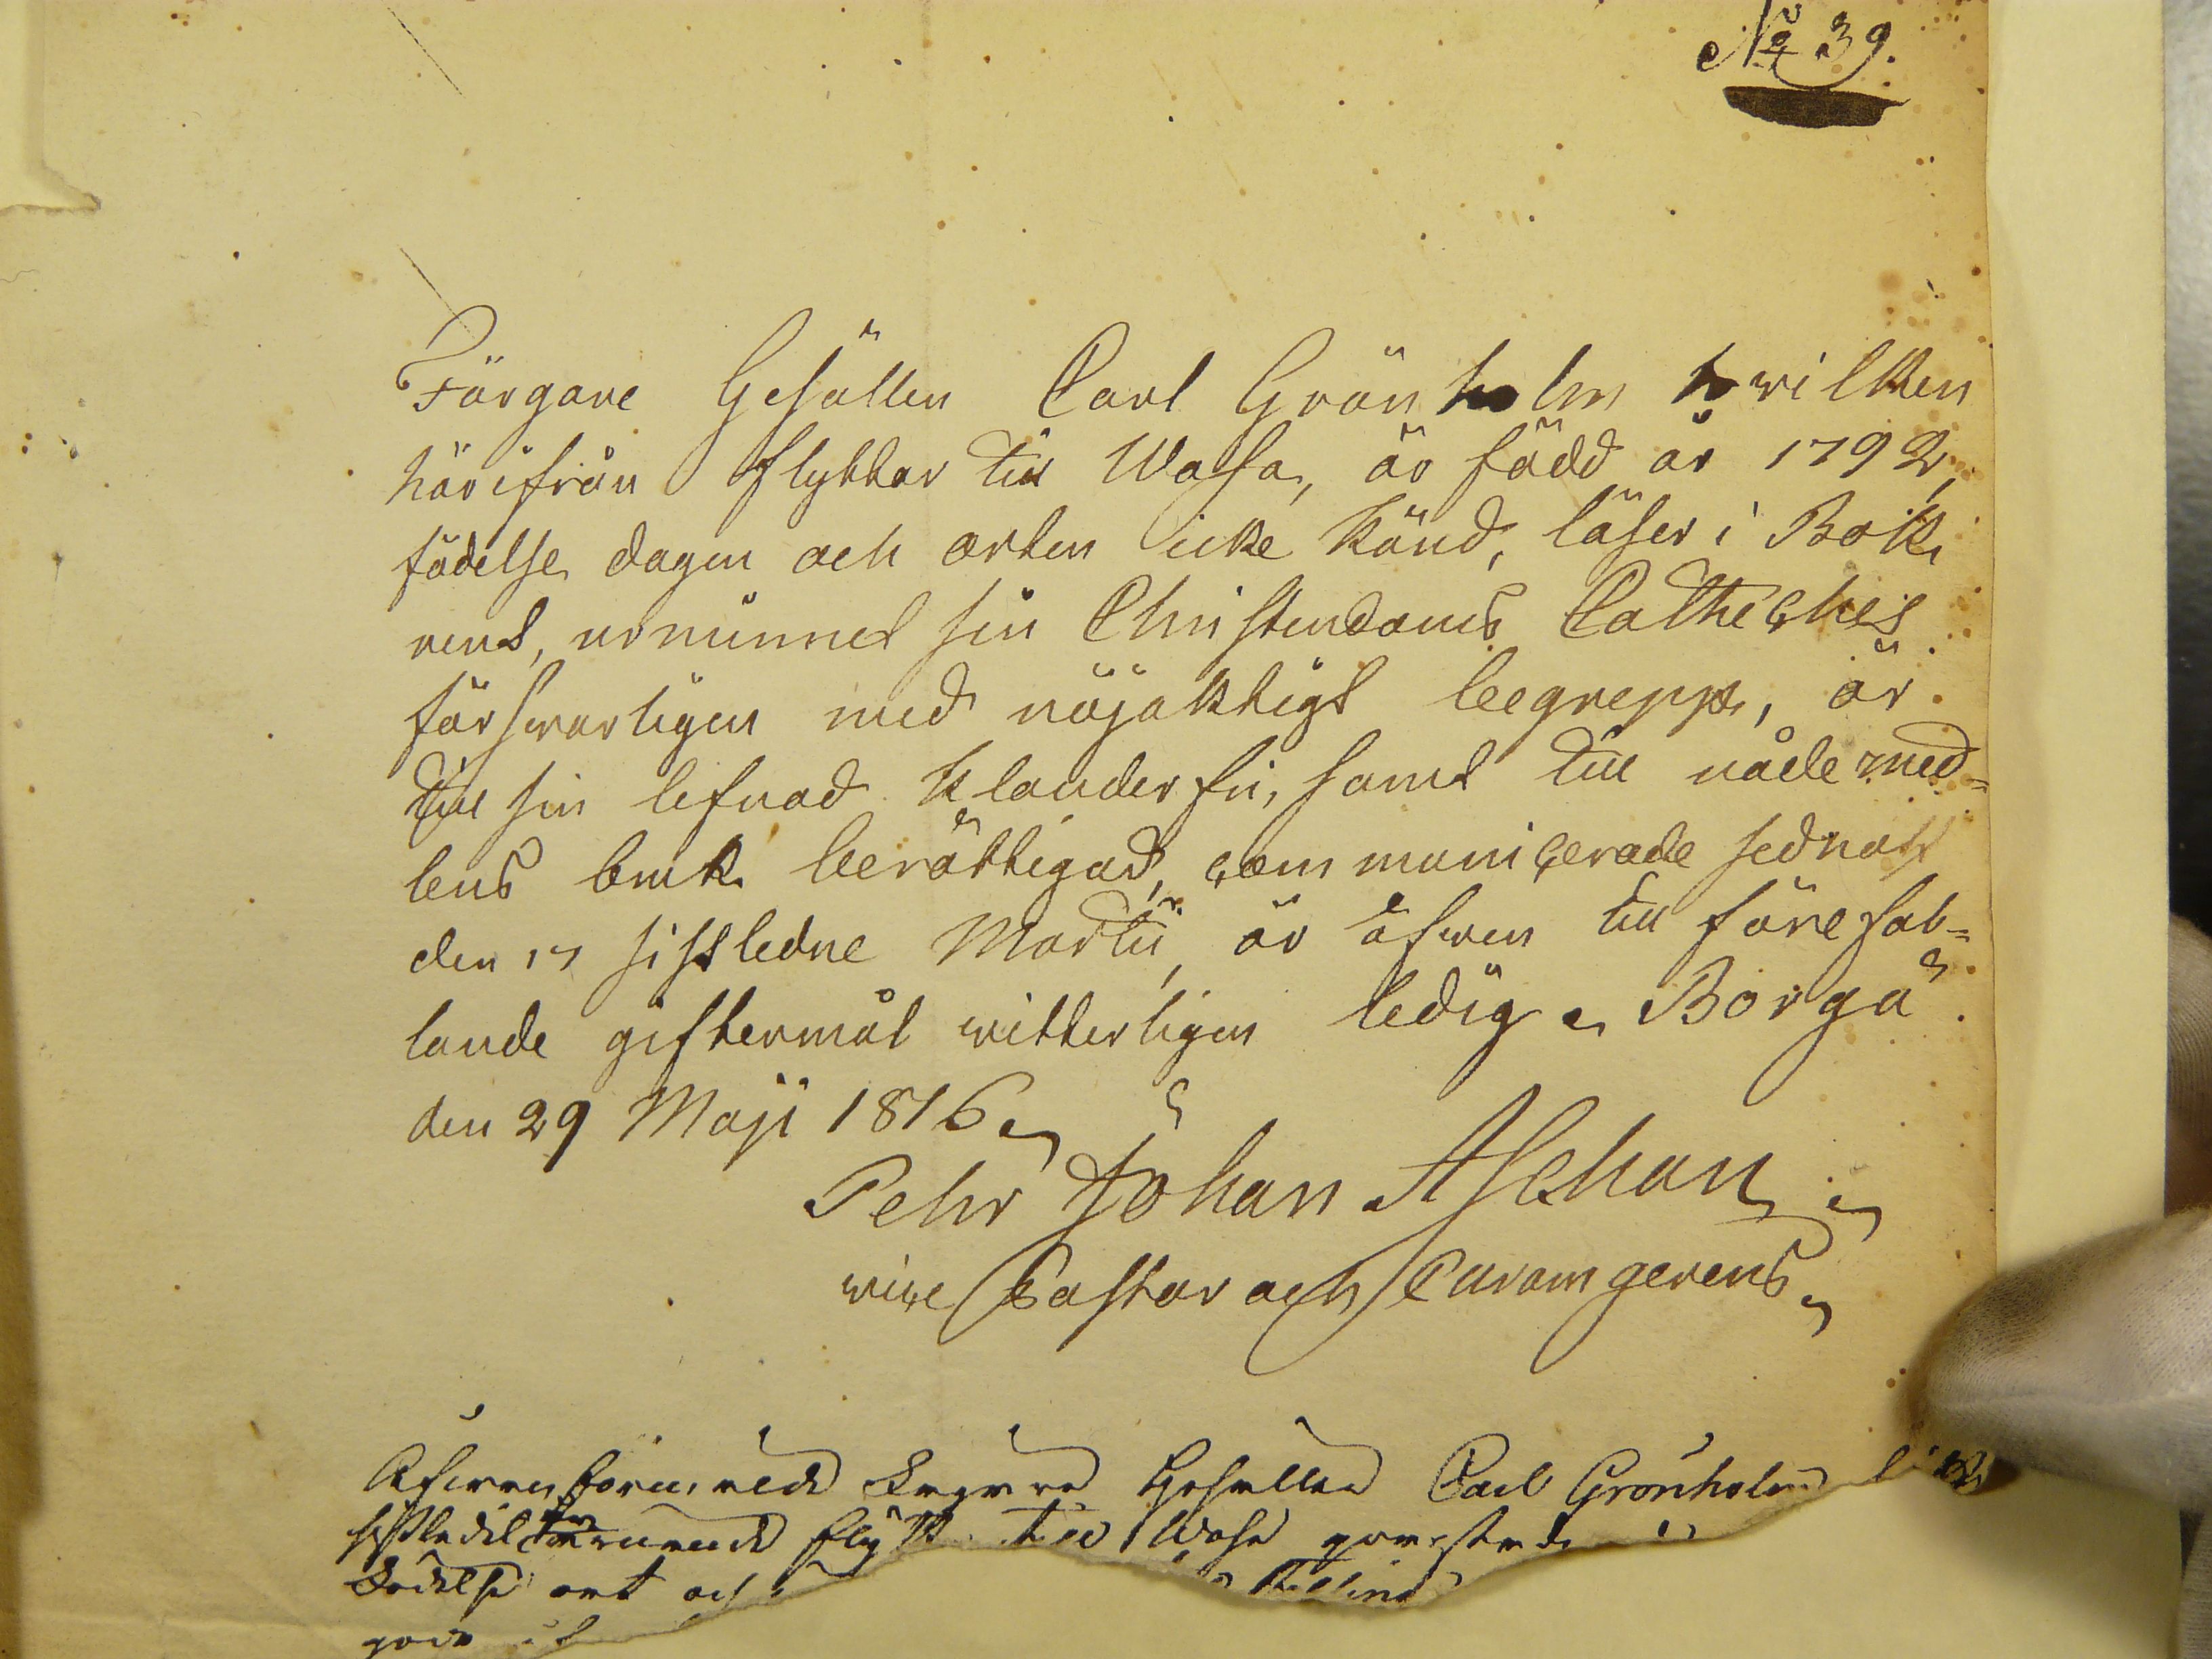 No 39.
Färgare Gesällen Carl Grönholm hvilken
härifrån flyttar till Wasa, är född år 1792,
födelse dagen och orten icke känd, läser i Bok
rent, urminnet sin Christendoms Catheches
försvarligen med nöjaktigt begrepp, är
till sin lefnad klanderfri, samt till nåde med=
lens bruk berättigad, communicerade sednast
den 17 sistledne Martii, är äfwen till förefal=
lande giftermål witterligen ledig. Borgå
den 29 Maji 1816.
Pehr Johan Alehan
vice Pastor och Curam gerens
Äfwen förmälde Gesellen Carl Grönholm
flytt till Wasa
födelse ort och